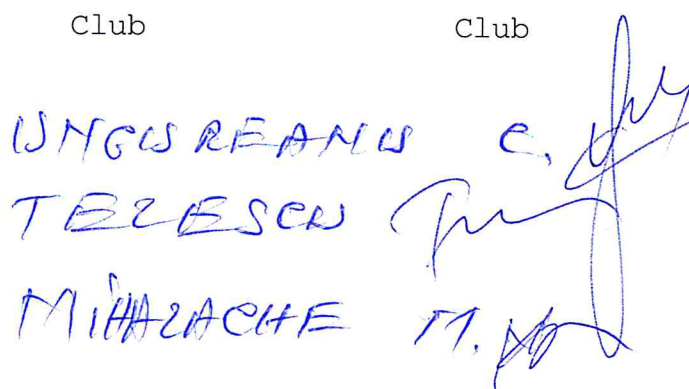 Club Club
UNGUREANU C.
TELESCU
MIHALACHE M.